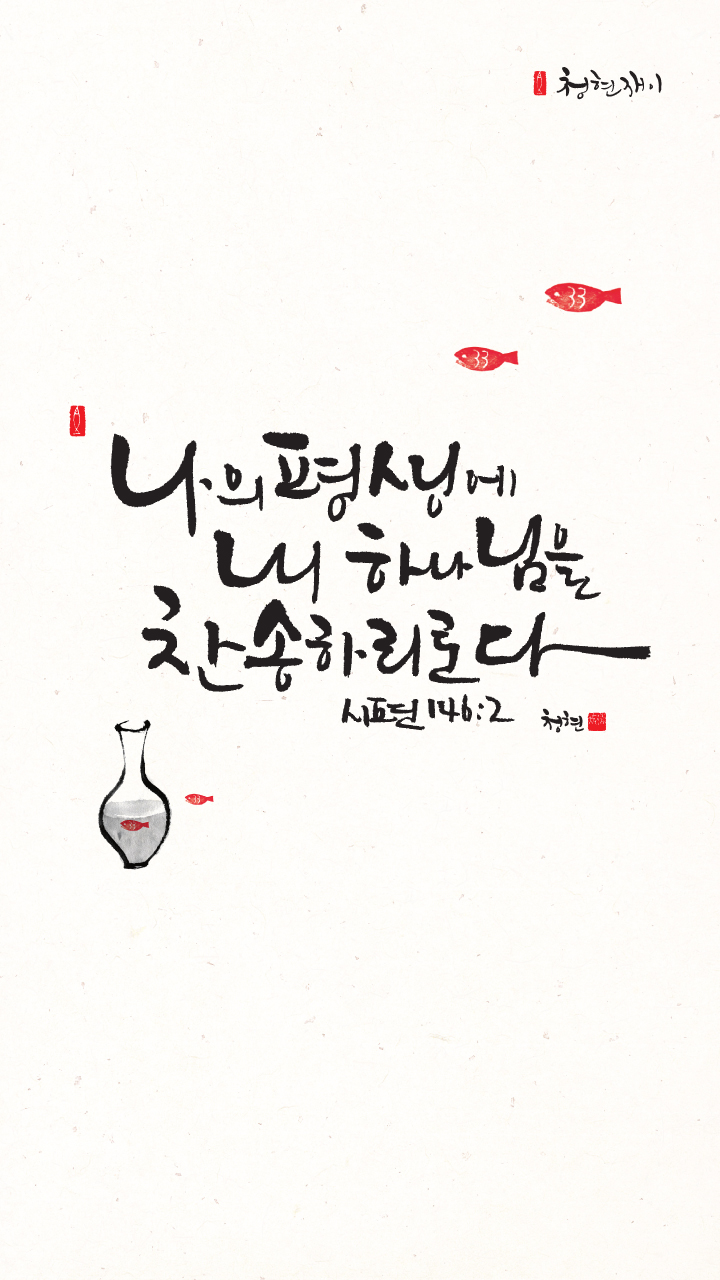 청현재이
나의 평생에
내 하나님을
찬송하리로다
시편 146:2
청현